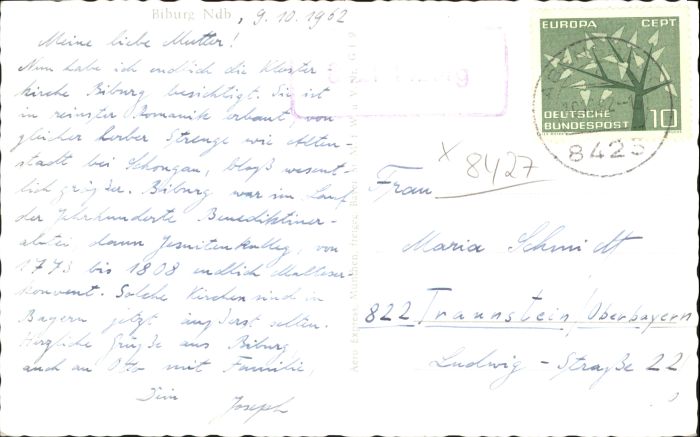 Biburg Ndb., 9.10.1962
Meine liebe Mutter!
Nun habe ich endlich die Kloster
kirche Biburg besichtigt. Sie ist
in reinster Romanik erbaut, von
gleicher herber Strenge wie Alten-
stadt bei Schongau, bloß wesent-
lich größer. Biburg war im Lauf
der Jahrhunderte Benediktiner-
abtei, dann Jesuitenkolleg, von
1773 bis 1808 endlich Malteser-
konvent. Solche Kirchen sind in
Bayern jetzt äußerst selten.
Herzliche Grüße aus Biburg,
auch an Otto mit Familie,
Dein
Joseph
EUROPA CEPT
DEUTSCHE
BUNDESPOST 10
8425
x 8427
Frau
Maria Schmidt
822 Traunstein/Oberbayern
Ludwig-Straße 22